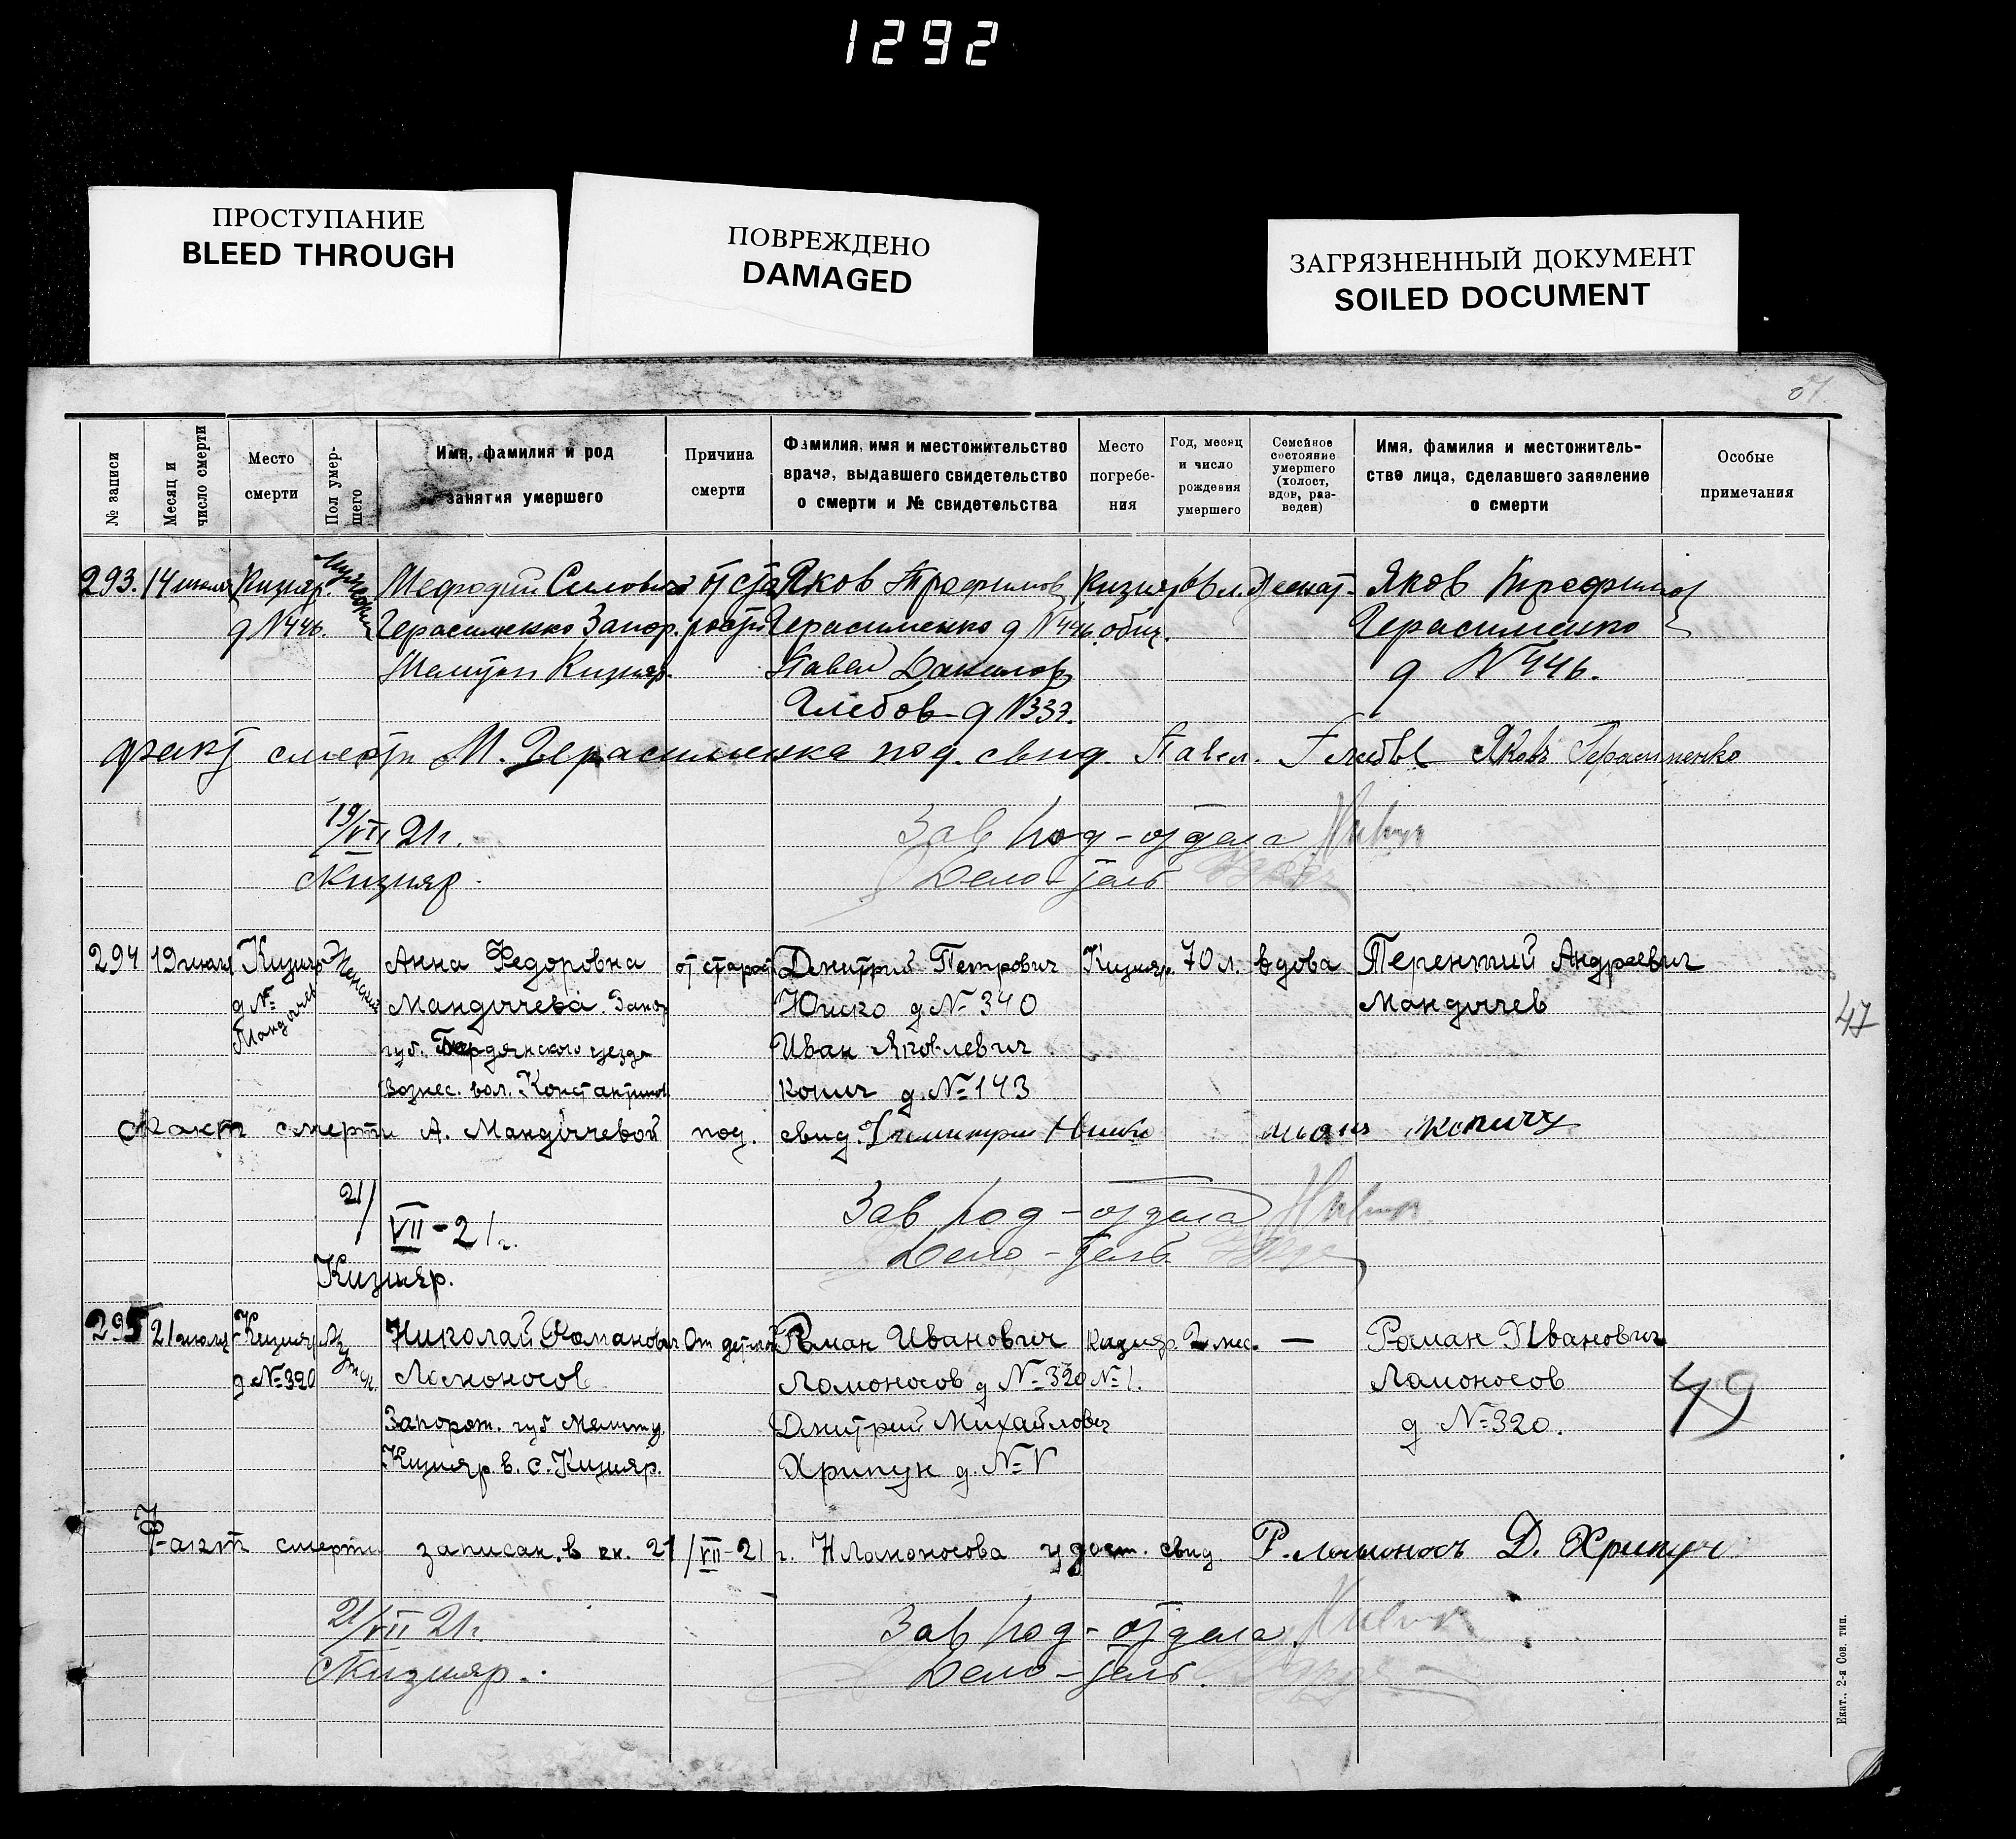 1292
ПРОСТУПАНИЕ
BLEED THROUGH
ПОВРЕЖДЕНО
DAMAGED
ЗАГРЯЗНЕННЫЙ ДОКУМЕНТ
SOILED DOCUMENT
№ записи
Месяц и
число смерти
Место
смерти
Пол умер-
шего
Имя, фамилия и род
занятия умершего
Причина
смерти
Фамилия, имя и местожительство
врача, выдавшего свидетельство
о смерти и № свидетельства
Место
погребе-
ния
Год, месяц
и число
рождения
умершего
Семейное
состояние
умершего
(холост,
вдов, раз-
веден)
Имя, фамилия и местожитель-
ство лица, сделавшего заявление
о смерти
Особые
примечания
293.
14 июля
Кизияр.
д №446.
Мефодий Силович
Герасименко Запор.
Кизияр.
от ста
рости
Яков Трофимов
Герасименко д №446.
Павел Данилов
Глебов д №
Кизияр
общ.
Яков Трофимов
Герасименко
д №446.
факт смерти М. Герасименка под. свид. Павел. Глебов Яковъ Герасименко
19/VII 21г.
с Кизияр.
Зав под-отдела
Дело-тель
294
19 июля
Кизияр
д №
Мандычев
Женский
Анна Федоровна
Мандычева. Запор
губ. Бердянского уезда
Вознес. вол. Константинов
от старости
Дмитрий Петрович
д №340
Иван Яковлевич
Копич д. №143
Кизияр.
70 л.
вдова
Терентий Андреевич
Мандычев
47
Факт смерти А. Мандычевой под. свид.
21/VII-21г.
Кизияр.
Зав под-отдела
Дело-тель.
295
21 июля
Кизияр
д №320
Мужск.
Николай Романович
Ломоносов
Запорож. губ Мелит у.
Кизияр в. с. Кизияр.
От детской
Роман Иванович
Ломоносов д №320
Дмитрий Михайлович
Хрипун д. №V
Кизияр.
№1.
2 мес.
—
Роман Иванович
Ломоносов
д №320.
49
Факт смерти записан. в кн. 21/VII-21 г. Н Ломоносова удост. свид. Р. Ломоносъ Д. Хрипун
21/VII 21г.
с Кизияр.
Зав под-отдела.
Дело-тель.
Екат., 2-я Сов. тип.